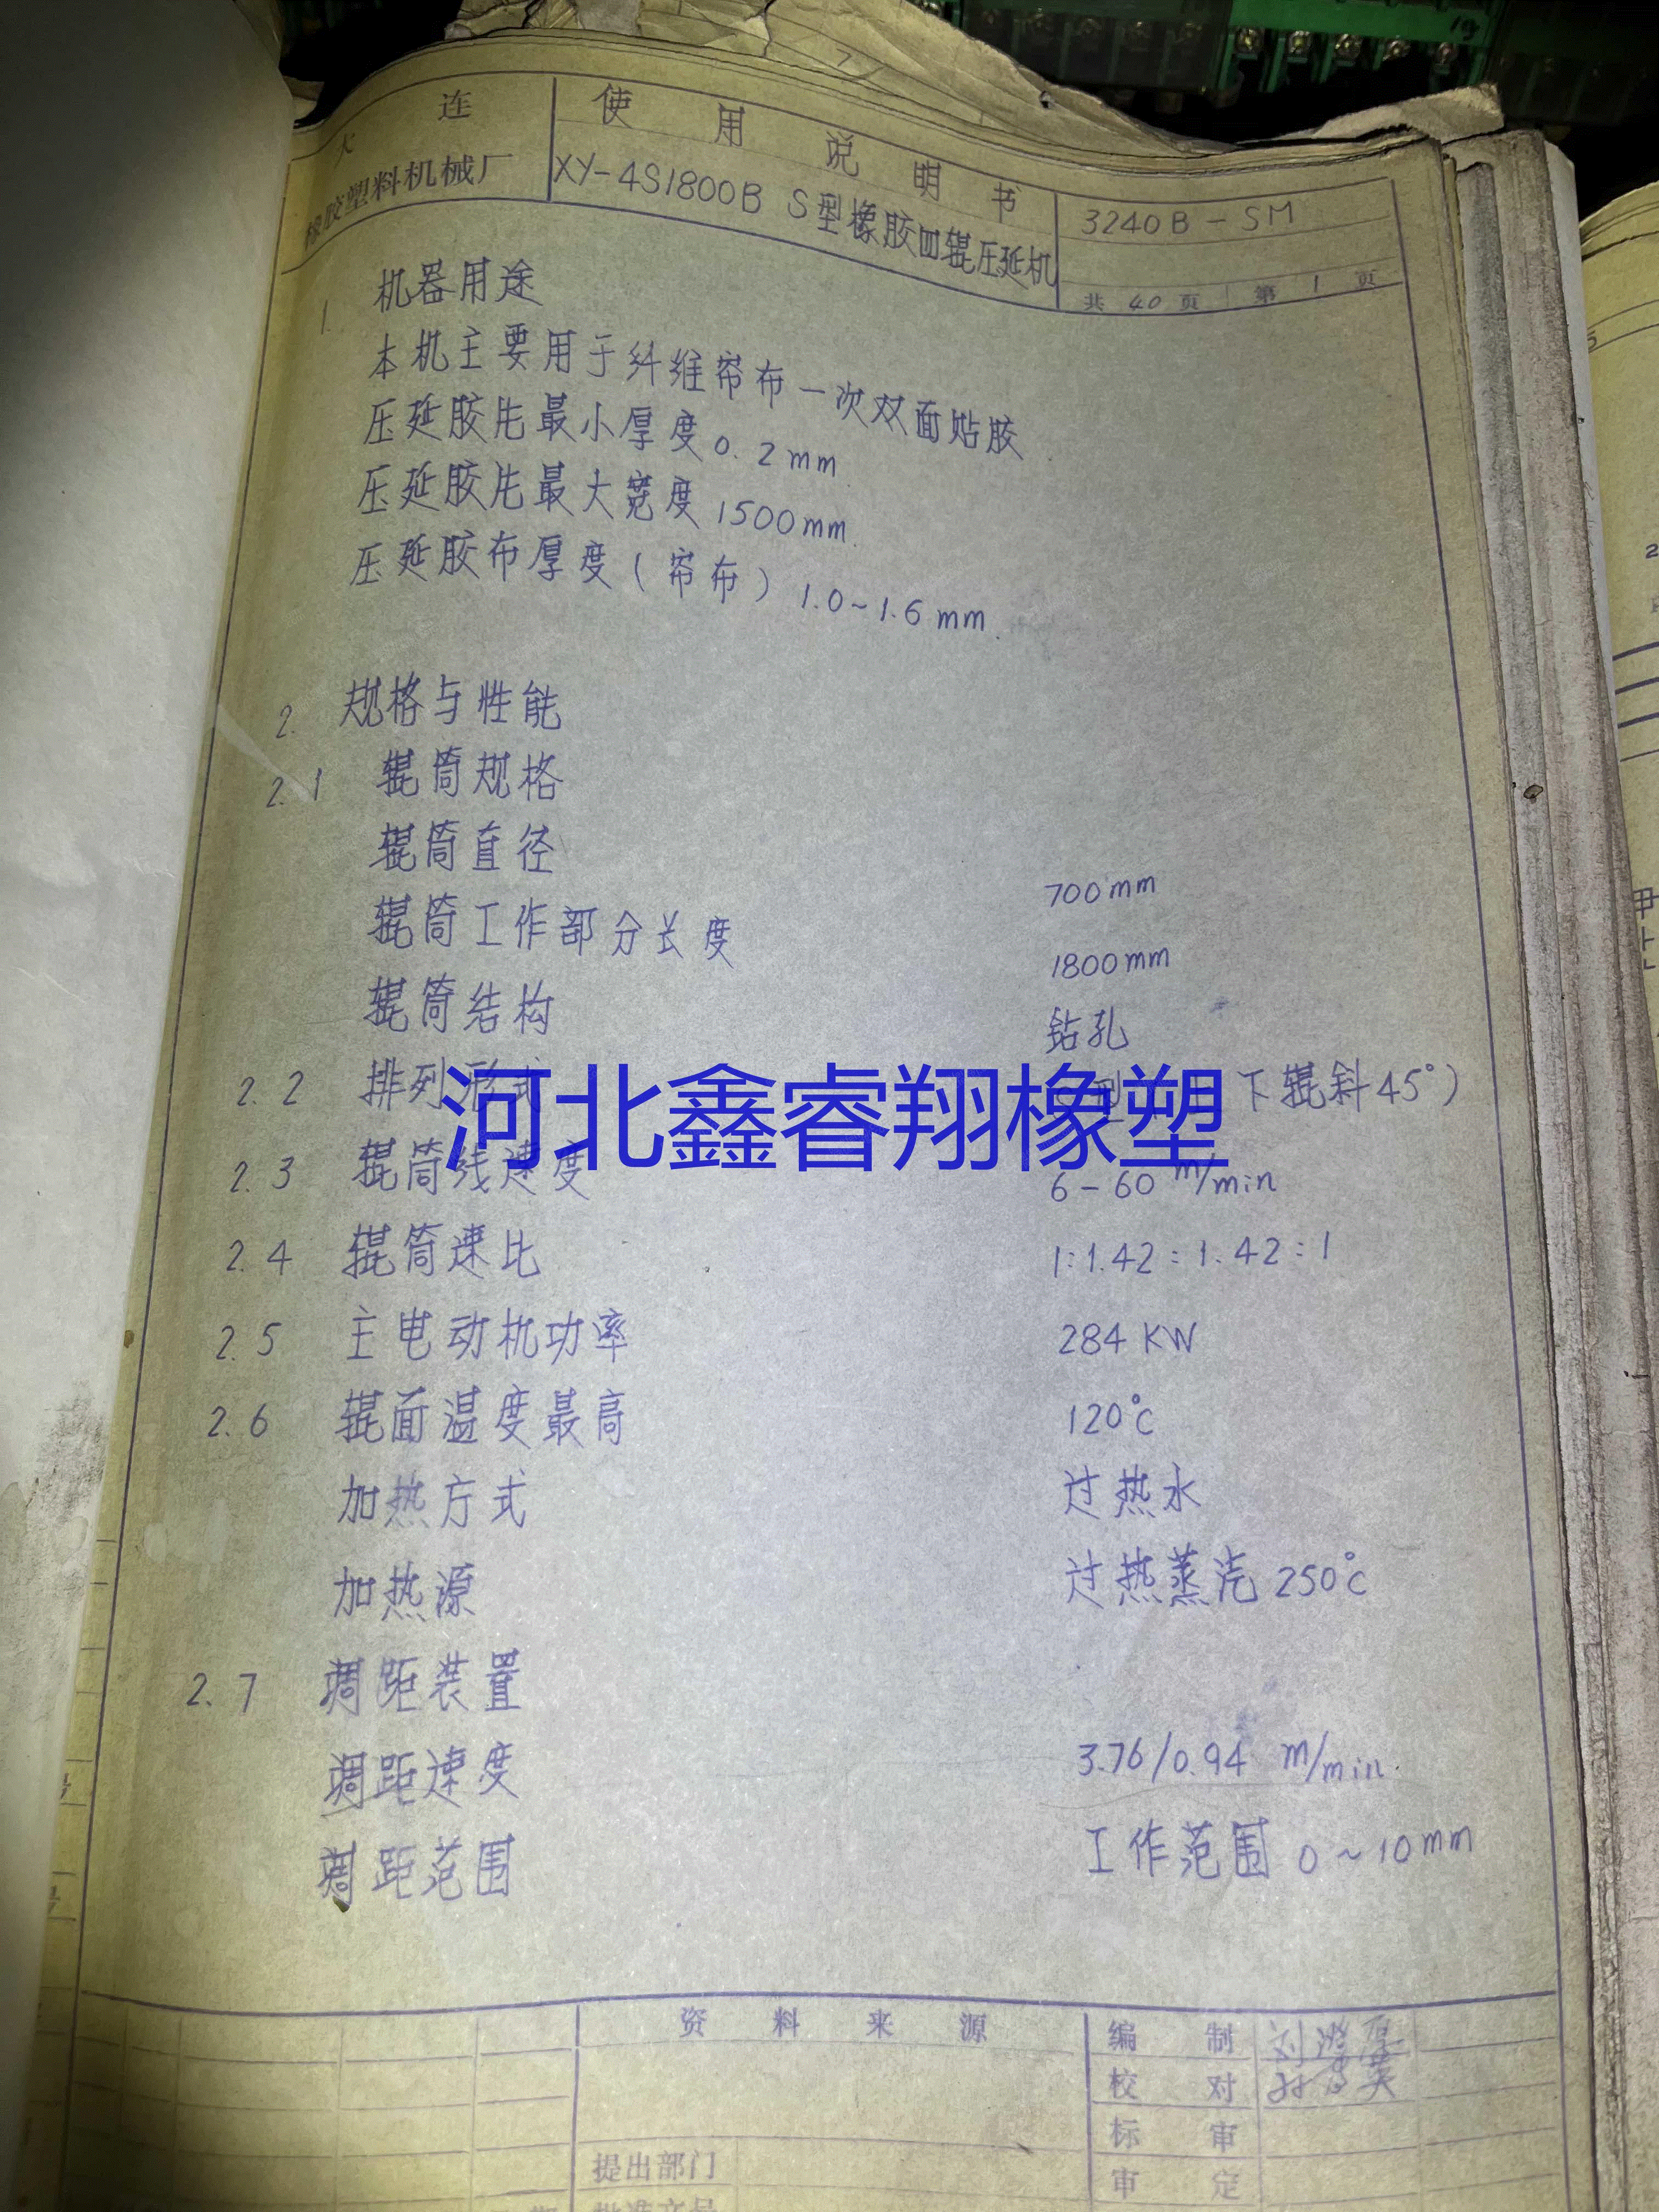 大连
橡胶塑料机械厂
使用说明书
XY-4S1800B S型橡胶四辊压延机
3240B-SM
共 40 页 第 1 页
1. 机器用途
本机主要用于纤维帘布一次双面贴胶
压延胶片最小厚度 0.2mm
压延胶片最大宽度 1500mm
压延胶布厚度(帘布) 1.0~1.6mm.
2. 规格与性能
2.1 辊筒规格
辊筒直径 700mm
辊筒工作部分长度 1800mm
辊筒结构 钻孔
2.2 排列形式 型 下辊斜45°)
河北鑫睿翔橡塑
2.3 辊筒线速度 6-60 m/min
2.4 辊筒速比 1:1.42:1.42:1
2.5 主电动机功率 284 KW
2.6 辊面温度最高 120℃
加热方式 过热水
加热源 过热蒸汽 250℃
2.7 调距装置
调距速度 3.76/0.94 m/min.
调距范围 工作范围 0~10mm
资料来源
编制
校对
标审
提出部门
审定